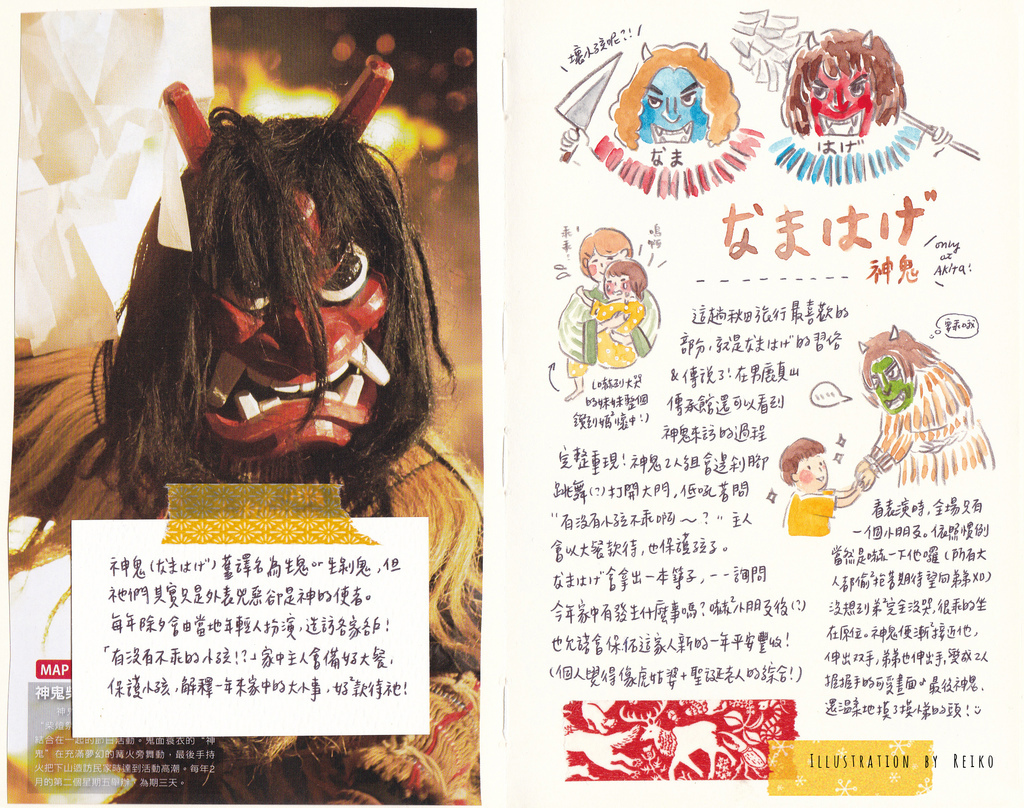 神鬼(なまはげ)舊譯名為生鬼or生剝鬼,但
祂們其實只是外表兇惡卻是神的使者。
每年除夕會由當地年輕人扮演,造訪各家各戶!
「有沒有不乖的小孩!?」家中主人會備好大餐,
保護小孩,解釋一年來家中的大小事,好好款待祂!
MAP
神鬼
結合在一起的節日活動。鬼面蓑衣的“神
鬼”在充滿夢幻的篝火旁舞動,最後手持
火把下山造訪民家時達到活動高潮。每年2
月的第二個星期五舉辦,為期三天。
壞小孩呢?!
なま
はげ
なまはげ
神鬼
only
at
Akita!
乖乖!
嗚啊
(口被嚇到大哭
的妹妹整個
鑽到媽媽懷中!)
這趟秋田旅行最喜歡的
部分,就是なまはげ的習俗
&傳說了!在男鹿真山
傳承館還可以看到
神鬼來訪的過程
完整重現!神鬼2人組會邊剁腳
跳舞(?)打開大門,低吼著問
“有沒有小孩不乖啊~?”主人
會以大餐款待,也保護孩子。
なまはげ會拿出一本簿子,一一詢問
今年家中有發生什麼事嗎?嚇嚇小朋友後(?)
也允諾會保佑這家人新的一年平安豐收!
(個人覺得像虎姑婆+聖誕老人的綜合!)
要乖哦
看表演時,全場只有
一個小朋友。依照慣例
當然是嚇一下他囉(所有大
人都偷偷抱著期待望向弟弟XD)
沒想到弟弟完全沒哭,很乖的坐
在原位。神鬼便漸漸接近他,
伸出双手,弟弟也伸出手,變成2人
握握手的可愛畫面♡最後神鬼
還溫柔地摸了摸小弟的頭!
ILLUSTRATION BY REIKO